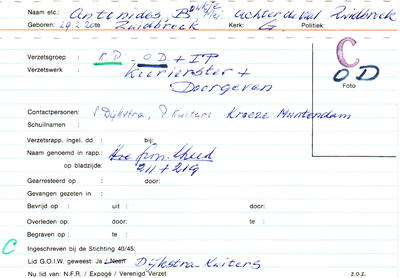 Naam etc.: Antonides, B Achter de Wal Zuidbroek
Geboren: 29.2.20 te Zuidbroek Kerk: G. Politiek:
C
OD
Foto
Verzetsgroep : K.P. - OD + IP
Verzetswerk : Koerierster +
Doorgeven
Contactpersonen: P. Dijkstra, P. Kuiters Kroeze Muntendam
Schuilnamen :
Verzetsrapp. ingel. dd. : bij:
Naam genoemd in rapp.:
op bladzijde: 211 + 219
Gearresteerd op : door:
Gevangen gezeten in :
Bevrijd op : uit : door:
Overleden op: door: te :
Begraven op : te :
C Ingeschreven bij de Stichting 40/45:
Lid G.O.I.W. geweest: Ja / Neen Dijkstra-Kuiters
Nu lid van: N.F.R. / Expogé / Verenigd Verzet z.o.z.